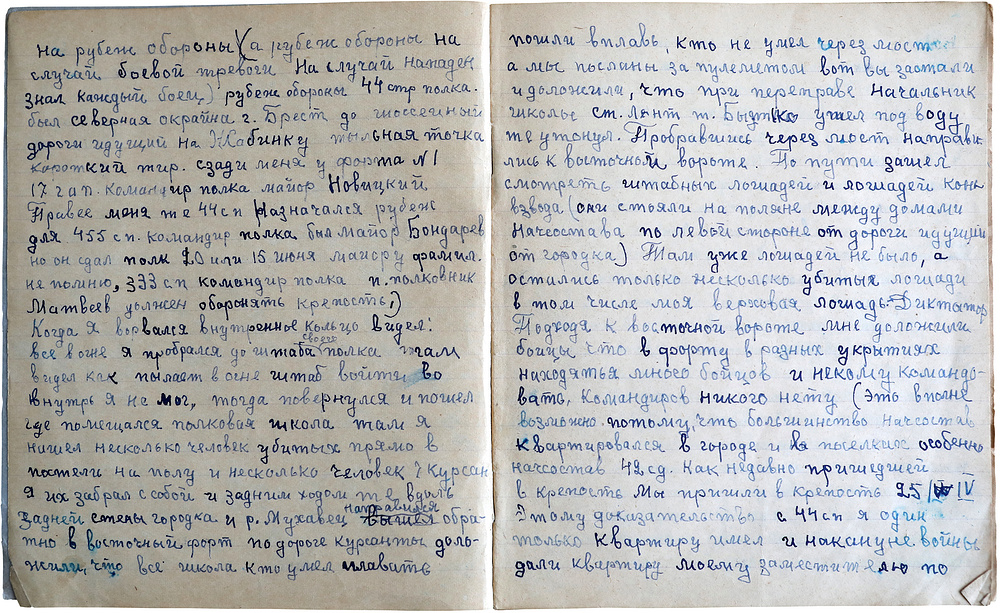 на рубеж обороны (а рубеж обороны на
случай боевой тревоги На случай нападен
знал каждый боец) рубеж обороны 44 стр полка.
был северная окрайна г. Брест до шоссейной
дороги идущий на Жабинку тыльная точка
короткий тир. сзади меня у форта N 1
17 гап. командир полка майор Новицкий
Правее меня же 44 сп назначался рубеж
для 455 сп. командир полка был майор Бондарев
но он сдал полк 20 или 15 июня майору фамил.
не помню, 333 сп командир полка п. полковник
Матвеев должен оборонять крепость,)
Когда я ворвался внутренное кольцо видел:
все в огне я пробрался до штаба своего полка и там
видел как пылает в огне штаб войти во
внутрь я не мог, тогда повернулся и пошел
где помещался полковая школа там я
нашел несколько человек убитых прямо в
постели на полу и несколько человек 7 курсан
я их забрал с собой и задним ходом т.е. вдоль
задней стены городка и р. Мухавец направился вышел обра-
тно в восточный форт по дороге курсанты доло-
жили, что все школа кто умел плавать
пошли вплавь, кто не умел через мост
а мы посланы за пулеметом вот вы застали
и доложили, что при переправе начальник
школы ст. лент т. Бытко ушел под воду
т.е утонул. Пробравшись через мост направи-
лись к восточной вороте. По пути зашел
смотреть штабных лошадей и лошадей кон.
взвода (они стояли на поляне между домами
начсостава по левой стороне от дороги идущий
от городка) Там уже лошадей не было, а
остались только несколько убитых лошади
в том числе моя верховая лошадь-Диктатор
Подходя к восточной вороте мне доложили
бойцы что в форту в разных укрытиях
находятья много бойцов и некому командо-
вать, командиров никого нету (Это вполне
возможно потому, что большинство начсостав
квартировался в городе и в поселких особенно
начсостав 42 сд. как недавно пришедшей
в крепость Мы пришли в крепость 25/IV
Этому доказательство с 44 сп я один
только квартиру имел и накануне войны
дали квартиру моему заместителю по